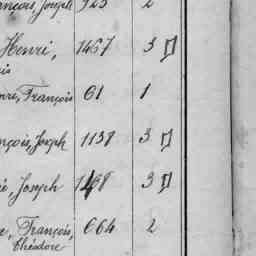 ançois, Joseph 923 2
Henri, 1467 3
is
nri, François 61 1
nçois, Joseph 1137 3
é, Joseph 1498 3
e, François, 664 2
Théodore